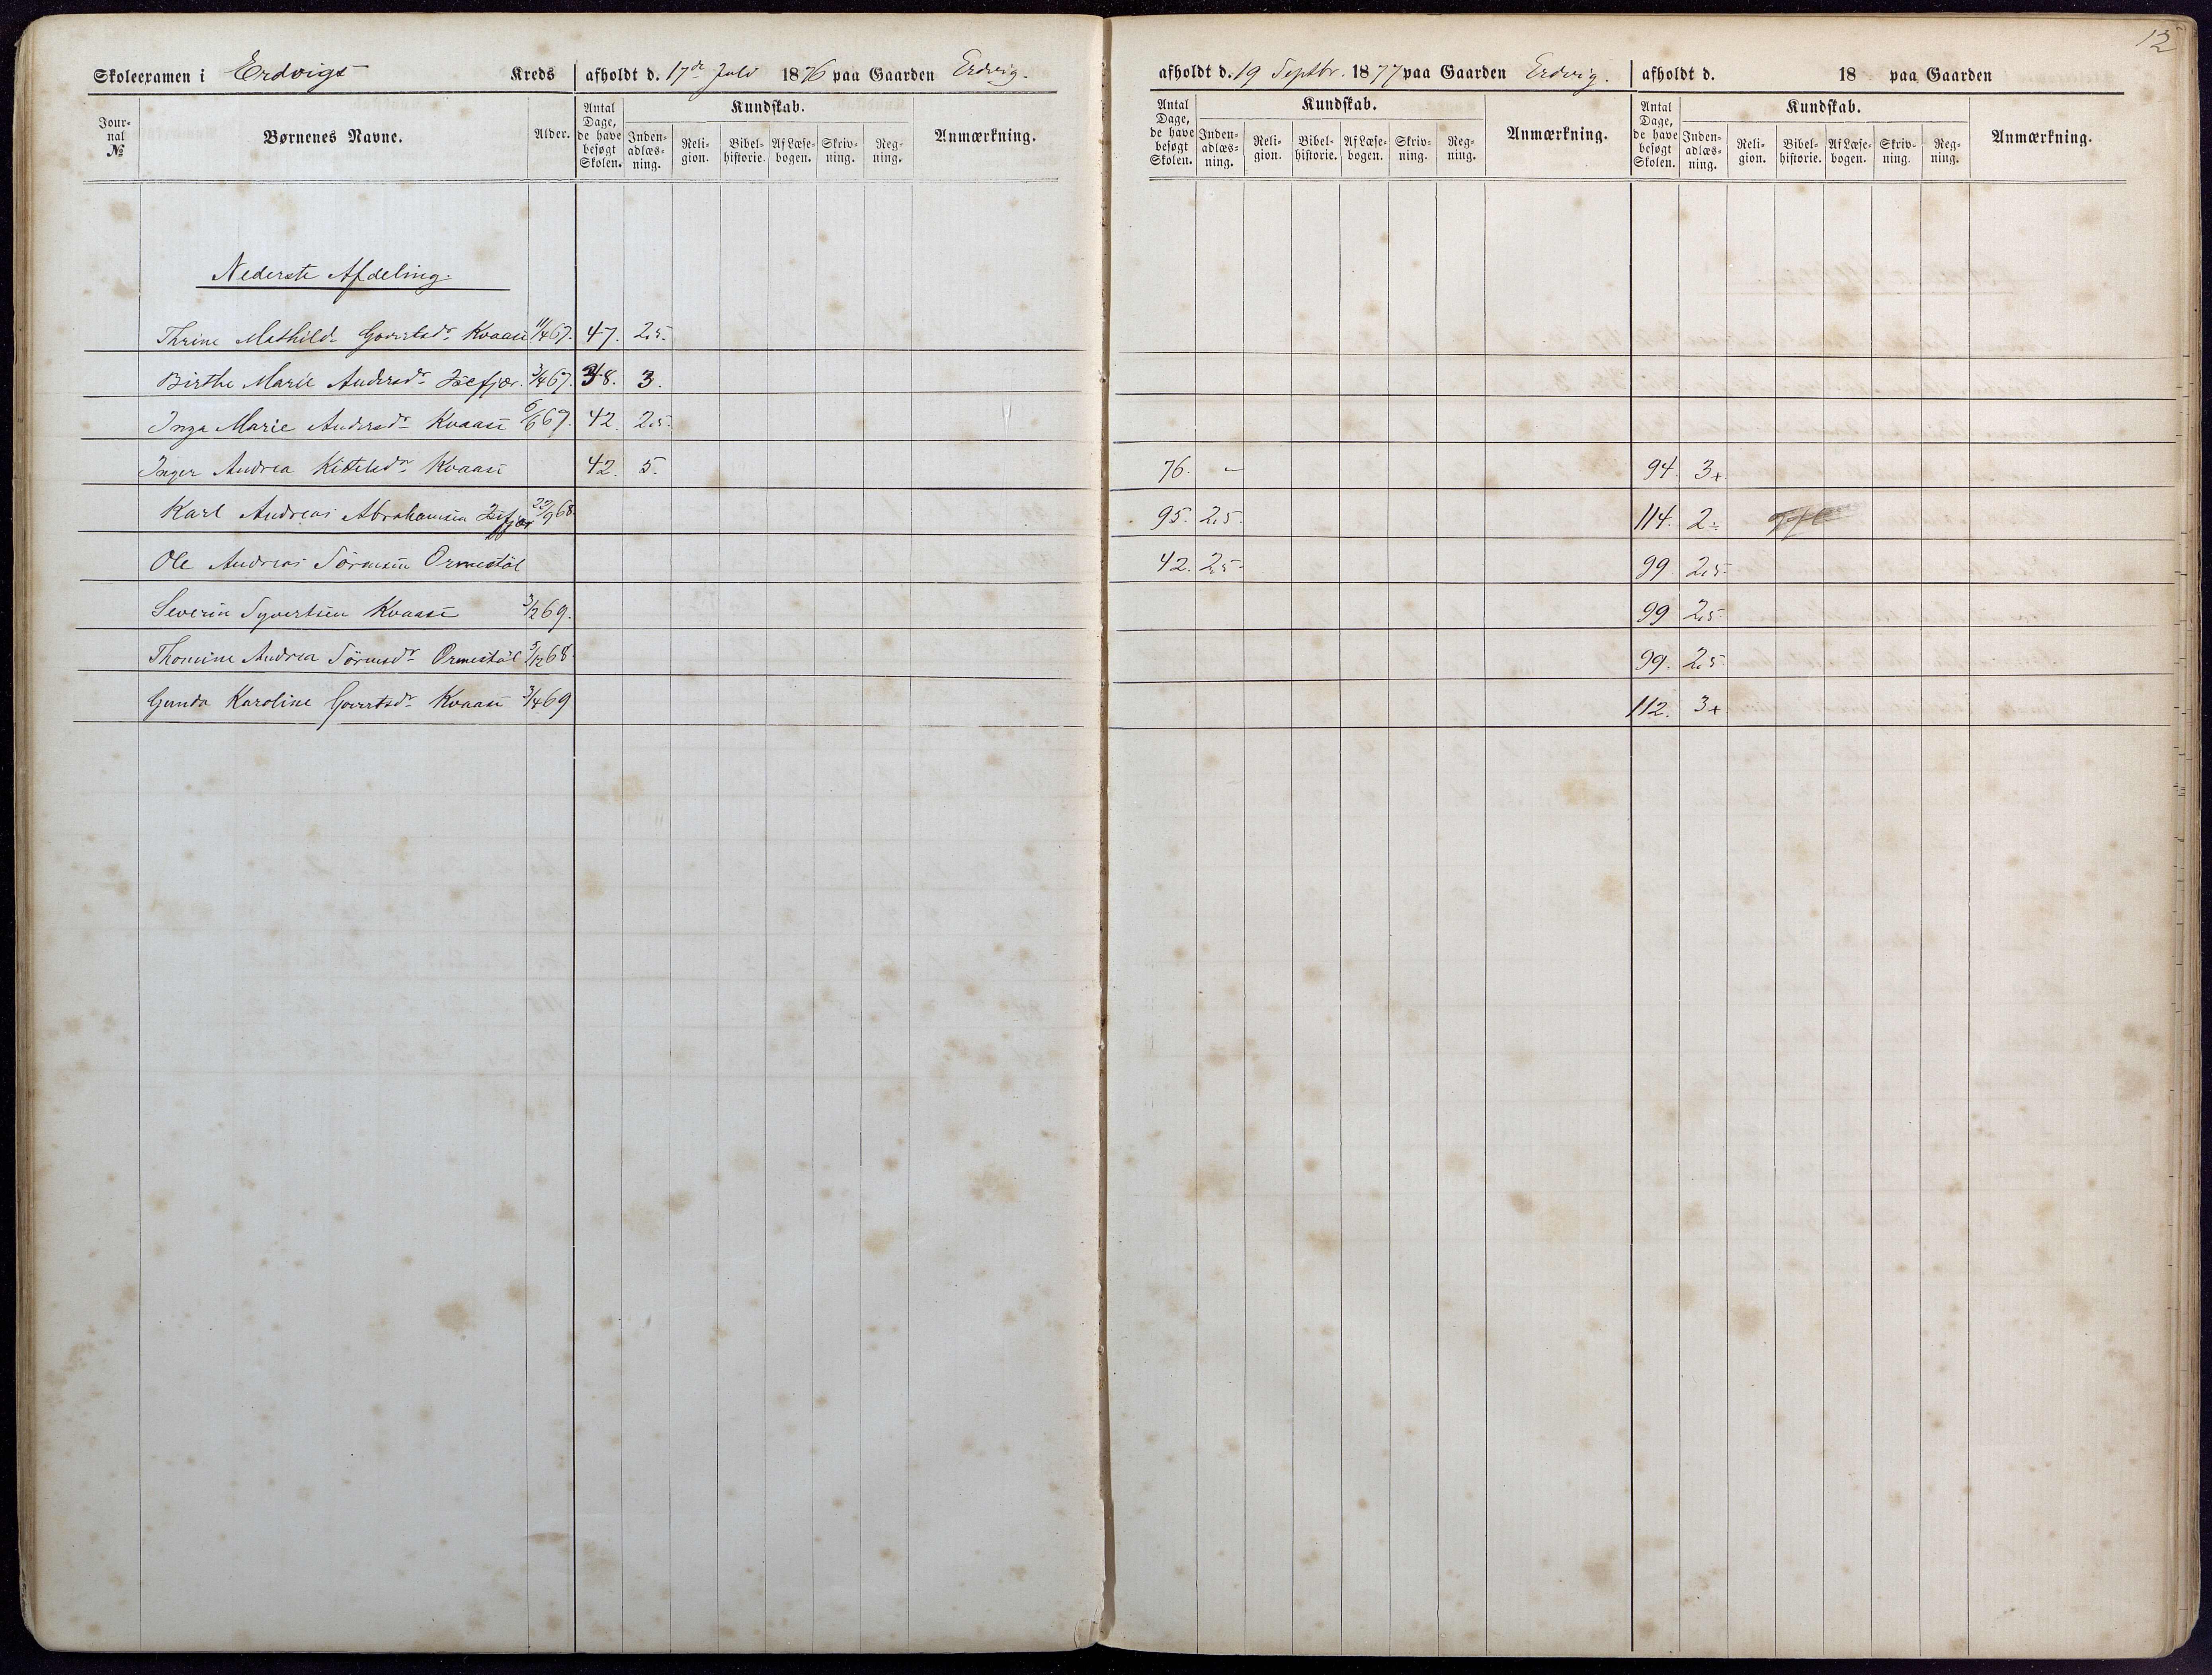 12
Skoleexamen i Erdvigs Kreds afholdt d. 17de Juli 1876 paa Gaarden Erdvig.
afholdt d. 19 Septbr. 1877 paa Gaarden Erdvig. afholdt d. 18 paa Gaarden
Jour-nal № Børnenes Navne. Alder. Antal Dage, de have besøgt Skolen. Kundskab. Inden-adlæs-ning. Reli-gion. Bibel-historie. Af Læse-bogen. Skriv-ning. Reg-ning. Anmærkning.
Antal Dage, de have besøgt Skolen. Kundskab. Inden-adlæs-ning. Reli-gion. Bibel-historie. Af Læse-bogen. Skriv-ning. Reg-ning. Anmærkning.
Antal Dage, de have besøgt Skolen. Kundskab. Inden-adlæs-ning. Reli-gion. Bibel-historie. Af Læse-bogen. Skriv-ning. Reg-ning. Anmærkning.
Nederste Afdeling.
Thrine Mathilde Govertsdr Kvaase 11/4 67. 47. 2,5.
Birthe Marie Andersdr 3/4 67. 38. 3.
Inga Marie Andersdr Kvaase 6/6 67. 42. 2,5.
Inger Andrea Kittelsdr Kvaase 42. 5. 76. – 94. 3+
Karl Andreas Abrahamsen 22/9 68. 95. 2,5. 114. 2÷
Ole Andreas Sörensen Ormestöl 42. 2,5 99 2,5
Severin Syvertsen Kvaase 3/12 69. 99 2,5
Thomine Andrea Sörensdr Ormestöl 5/12 68. 99. 2,5
Gunda Karoline Govertsdr Kvaase 3/4 69 112. 3+